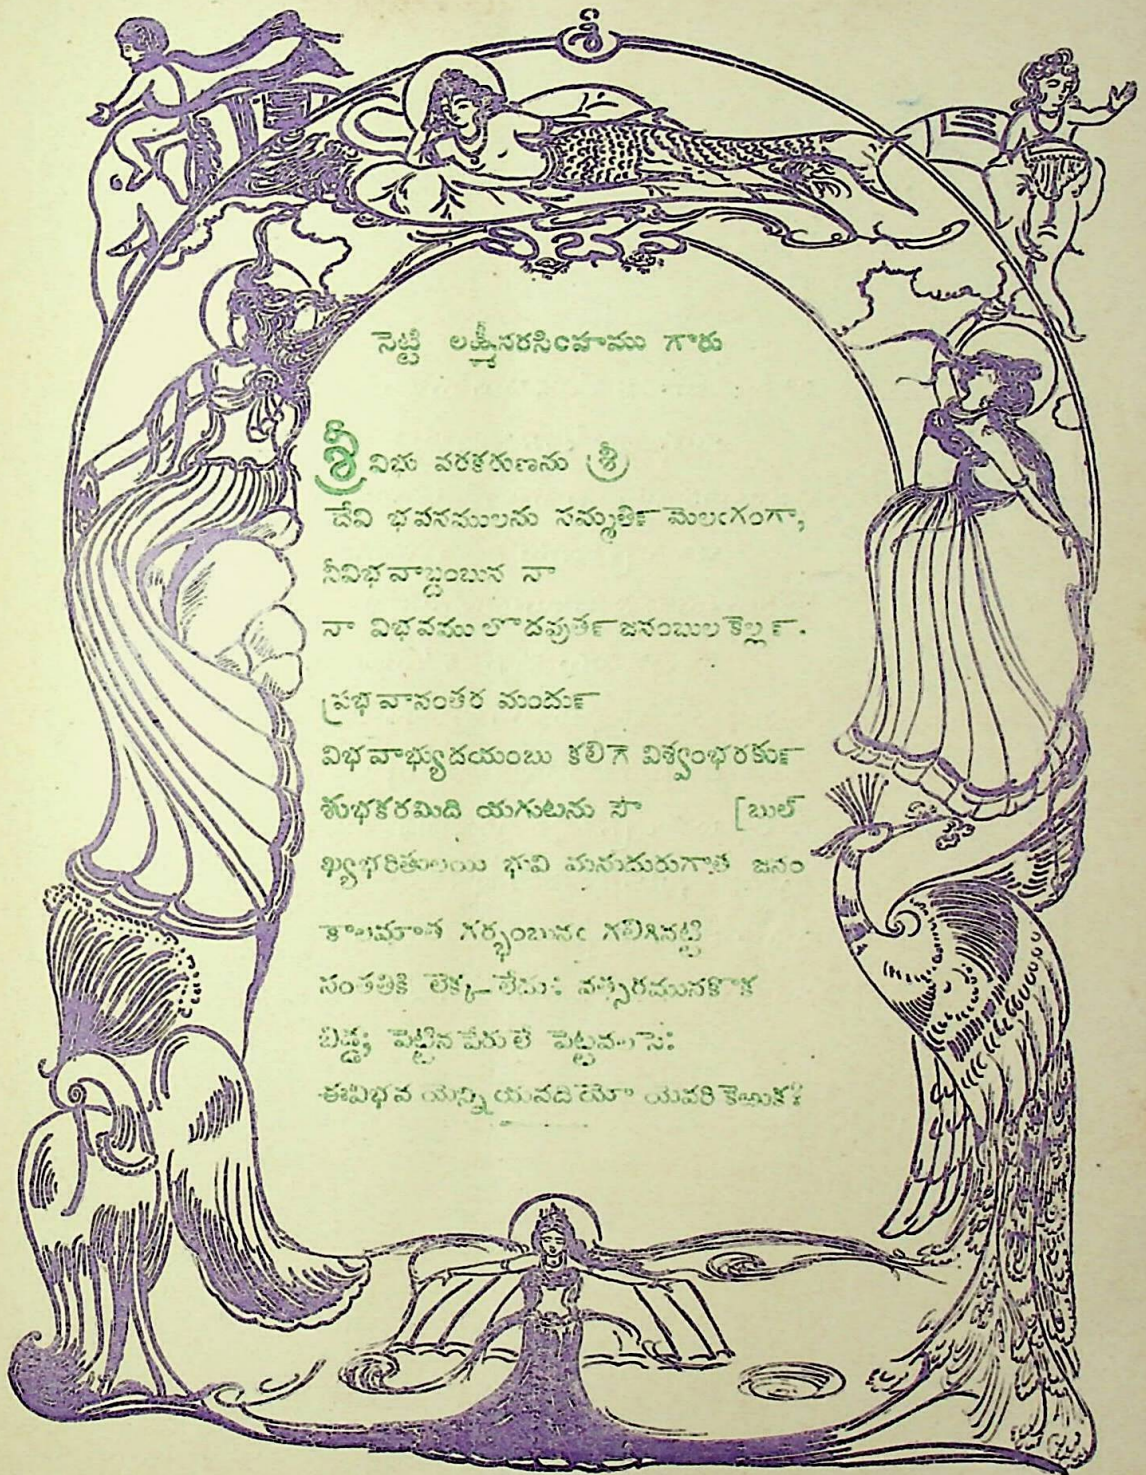 శ్రీ
విభవ
సెట్టి లక్ష్మీనరసింహము గారు
శ్రీ విభు వరకరుణను శ్రీ
దేవి భవనములను సన్మతిన్ మెలఁగంగా,
నీవిభవాబ్దంబున నా
నా విభవము లొదవుతన్ జనంబుల కెల్లన్.
ప్రభవానంతర మందున్
విభవాభ్యుదయంబు కలిగె విశ్వంభరకున్
శుభకరమిది యగుటను సౌ [బుల్
ఖ్యభరితులయి భువి మనుదురుగాత జనం
కాలమాత గర్భంబునఁ గలిగినట్టి
సంతతికి లెక్క లేదు; వత్సరమునకొక
బిడ్డ; పెట్టిన పేరులే పెట్టవలసె;
ఈవిభవ యెన్ని యవదియో యెవరి కెఱుక?